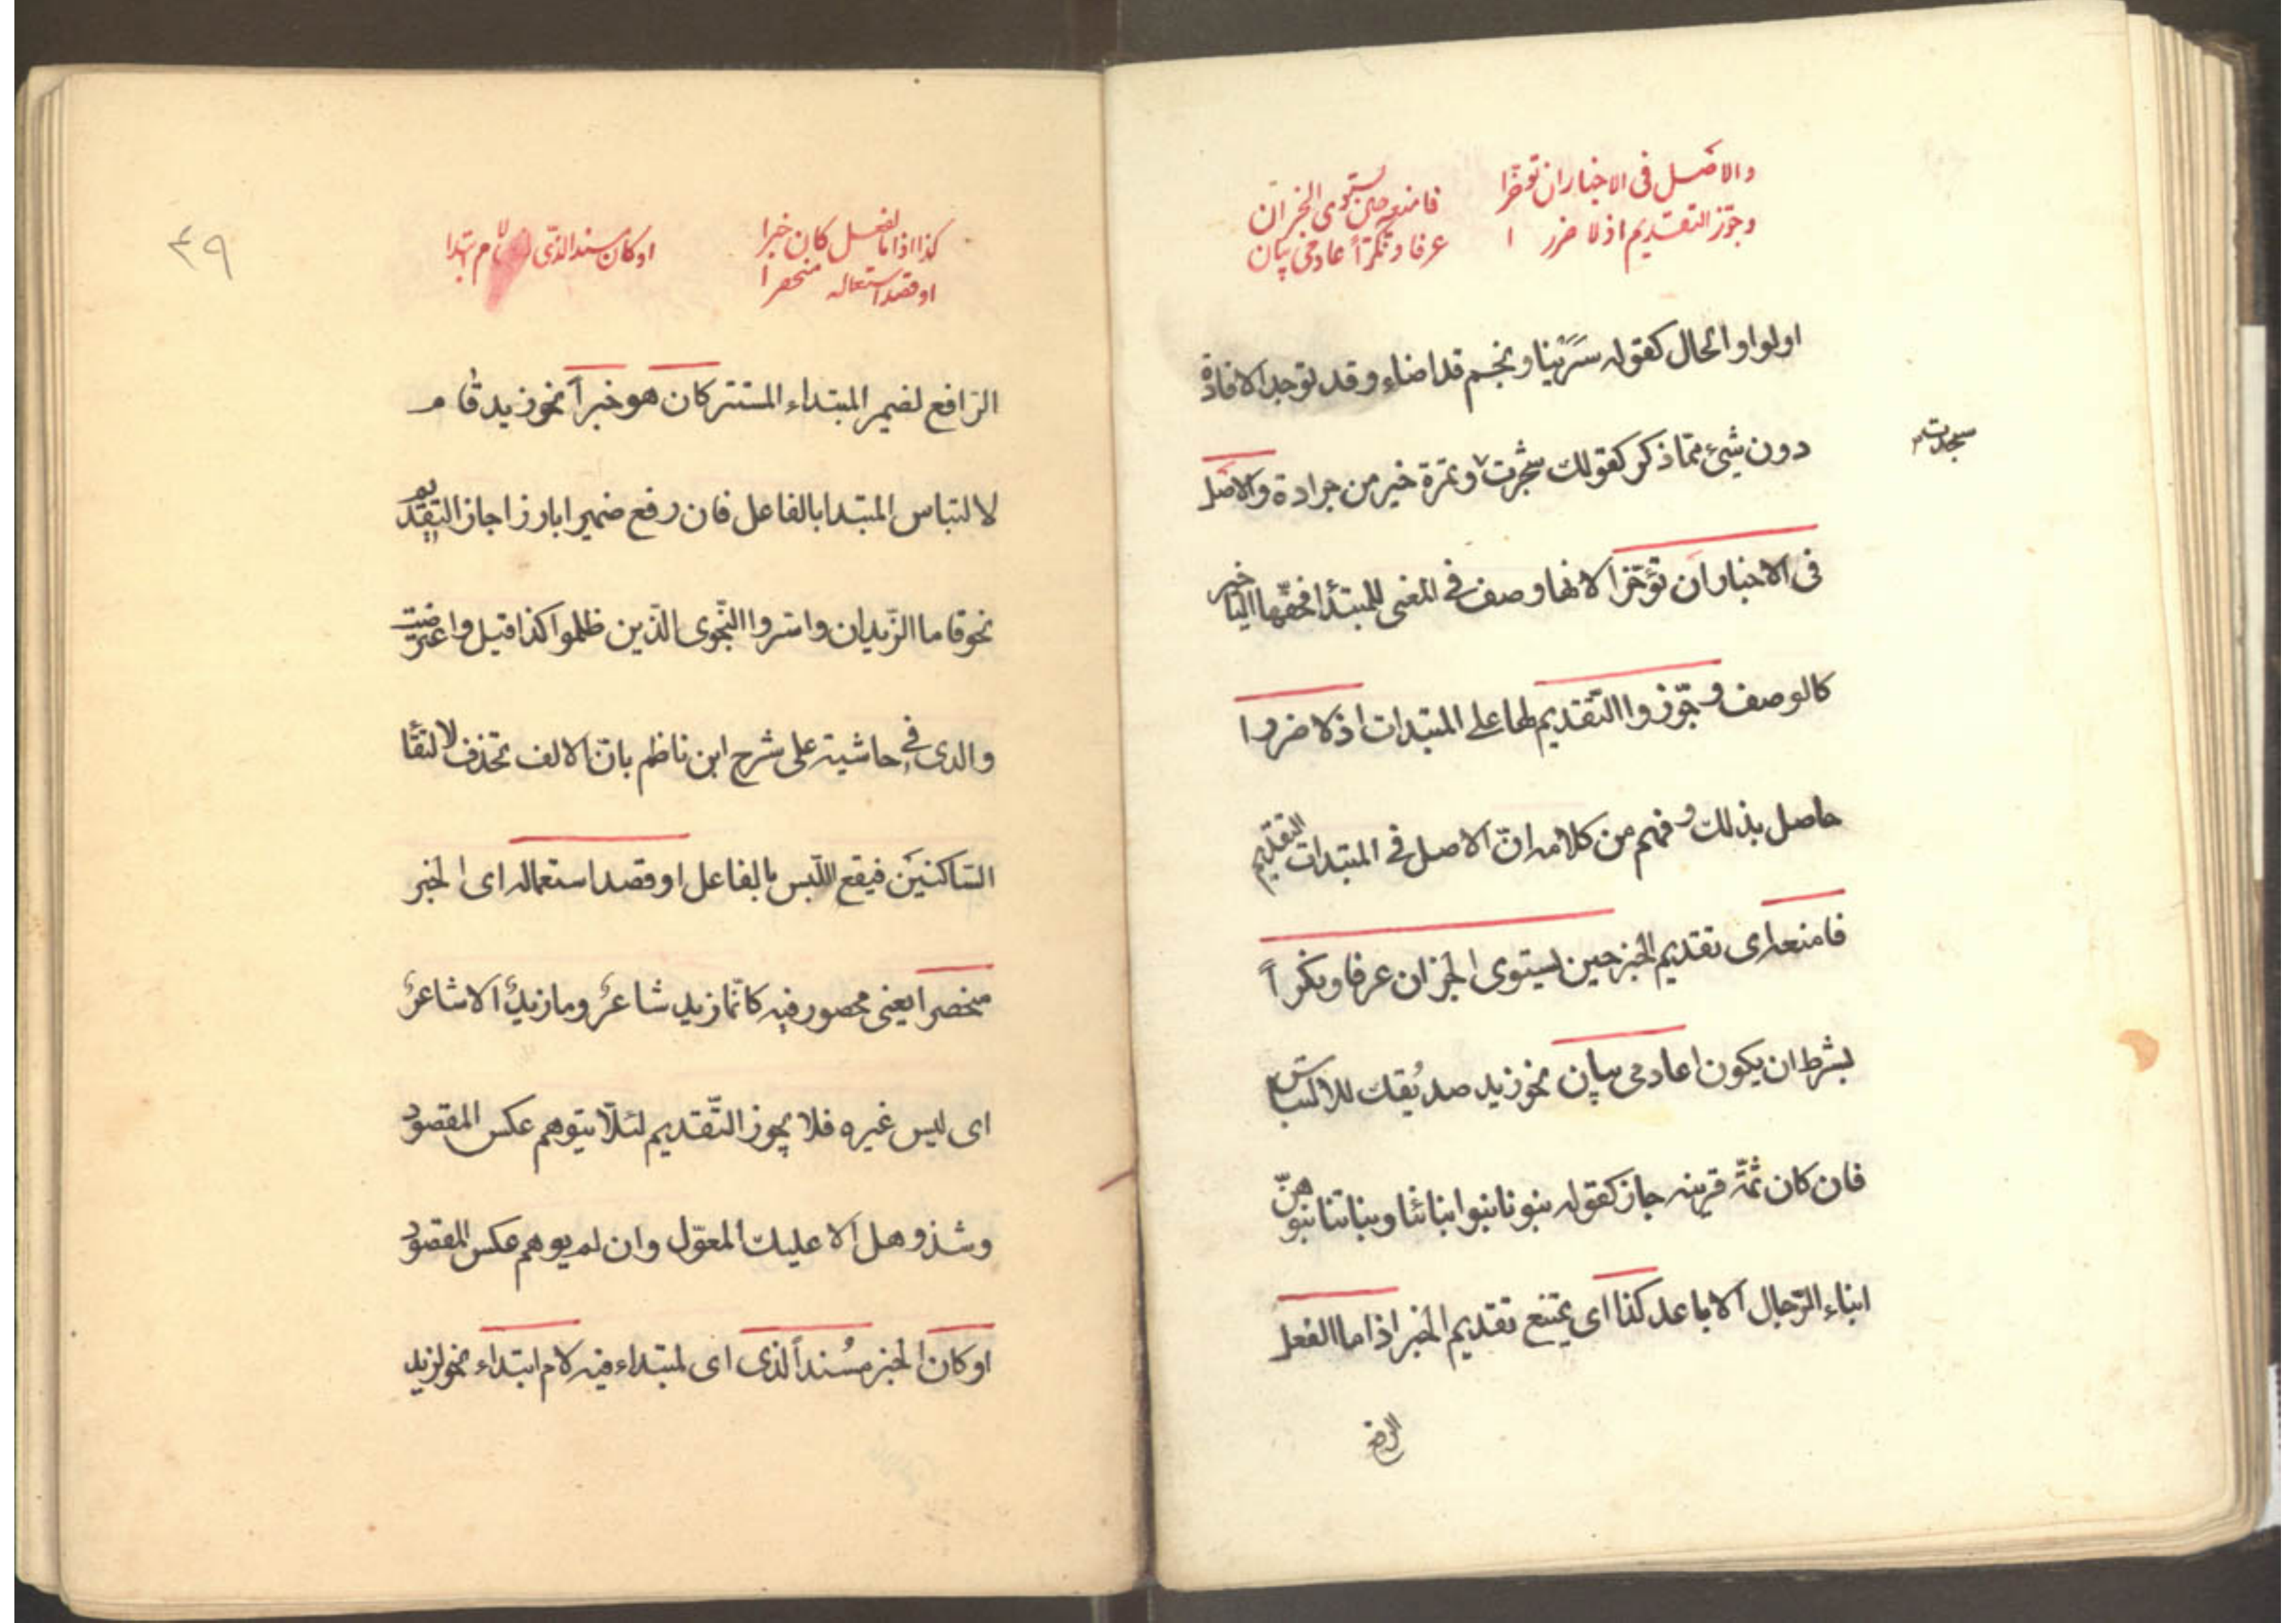 والاصل فى الاخبار ان توخرا
وجوّز التقديم اذ لا ضرر ا
فامنعه حين يستوى الخبران
عرفا ونكرًا عادمى بيان
اولواو الحال كقوله سَرَيْنا ونجم قد اضاء وقد توجد الافادة
دون شيئ ممّا ذكر كقولك شجرت وتمرة خير من جرادة والاصل
سجدت
فى الاخبار ان تؤخّرا لانها وصف فى المعنى للمبتدأ فحقّها التاخير
كالوصف وجوّزوا التّقديم لها على المبتدات اذ لا ضررا
حاصل بذلك وفهم من كلامه انّ الاصل فى المبتدات التقديم
فامنعه اى تقديم الخبر حين يستوى الخبران عرفا ونكراً
بشرط ان يكون اعادمى بيان نحو زيد صديقك للالتباس
فان كان ثمّة قرينه جاز كقوله بنونا بنوا ابنائنا وبناتنا بنوهنّ
ابناء الرّجال الاباعد كذا اى يمتنع تقديم الخبر اذا ما الفعل
الرافع
٤٩
كذا اذا ما الفعل كان خبرا
او قصد استعماله منحصرا
او كان مسندا لذى لام ابتدا
الرّافع لضمير المبتداء المستتر كان هو خبراً نحو زيد قام
لالتباس المبتدا بالفاعل فان رفع ضميرا بارزا جاز التقديم
نحو قاما الزّيدان واسّروا النّجوى الّذين ظلموا كذا قيل واعترضت
والدى فى حاشيته على شرح ابن ناظم بانّ الالف تحذف لالتقا
السّاكنَين فيقع اللّبس بالفاعل او قصد استعماله اى الخبر
منحصرا يعنى محصور فيه كانّما زيد شاعرٌ وما زيدٌ الا شاعرٌ
اى ليس غيره فلا يجوز التّقديم لئلّا يتوهم عكس المقصود
وشذ وهل الا عليك المعوّل وان لم يوهم عكس المقصود
او كان الخبر مسُنداً لذى اى لمبتداء فيه لام ابتداء نحو لزيد